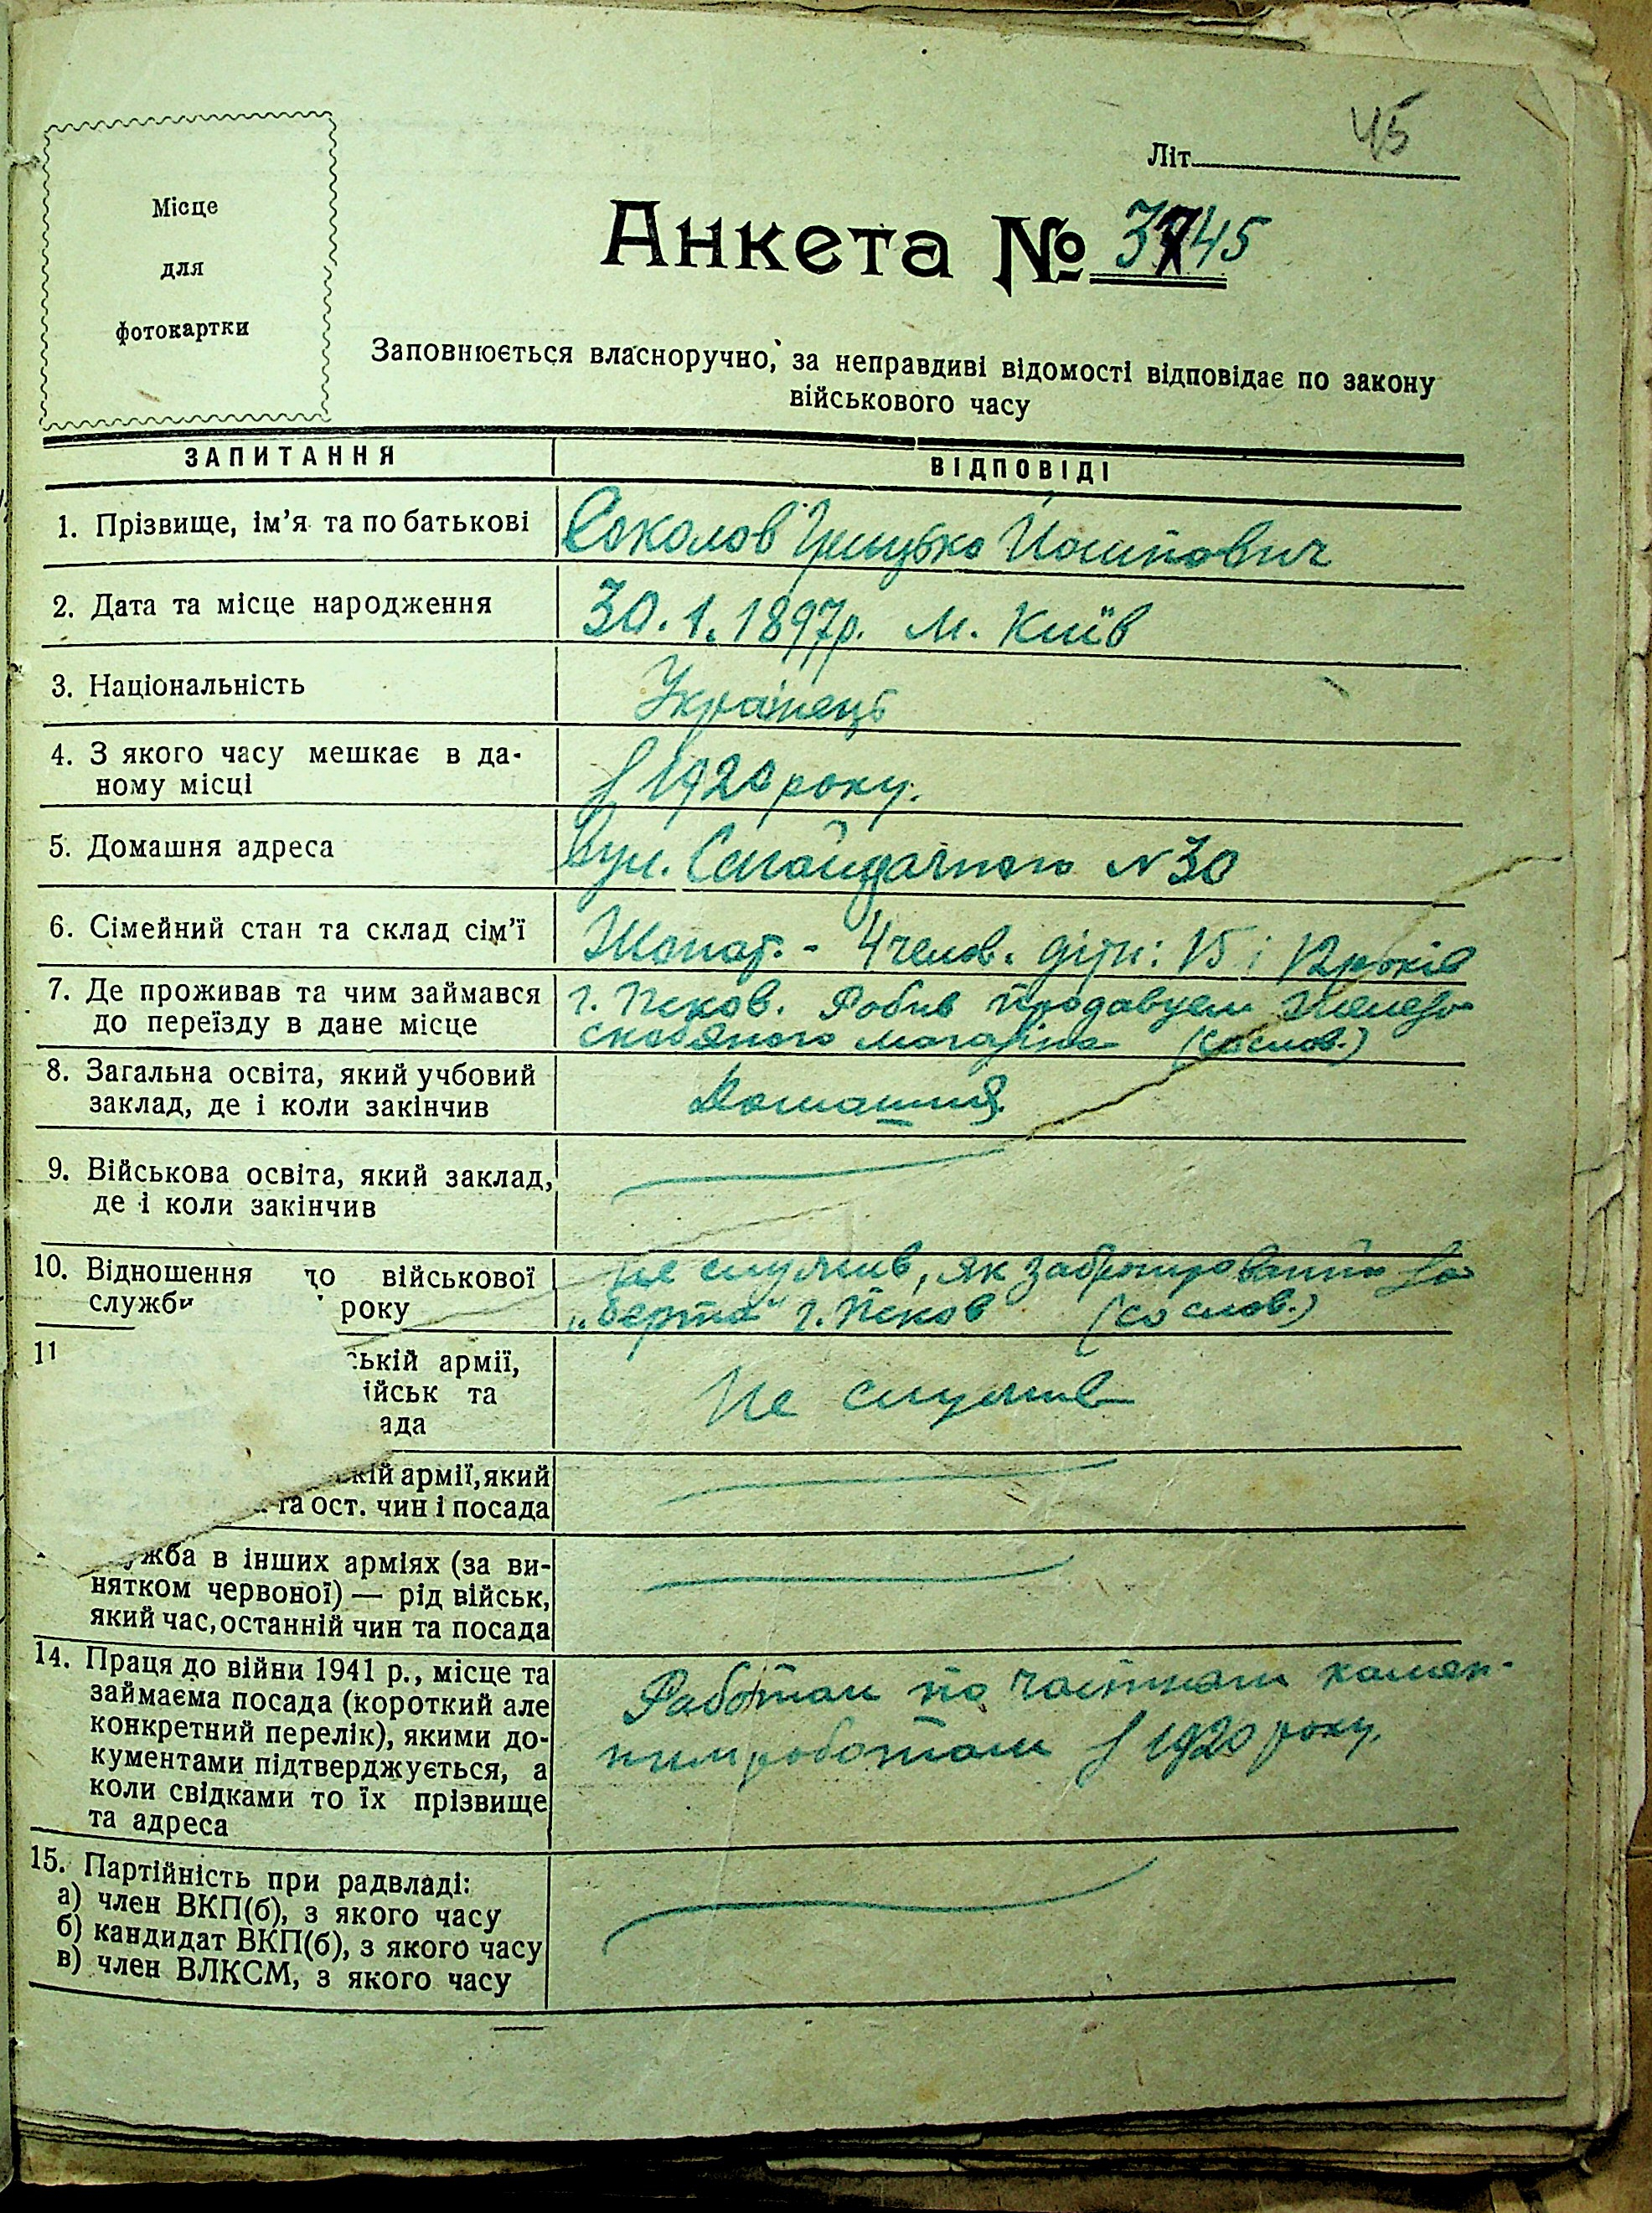 45
Літ.
Місце
для
фотокартки
Анкета № 3745
Заповнюється власноручно, за неправдиві відомості відповідає по закону
військового часу
ЗАПИТАННЯ
ВІДПОВІДІ
1. Прізвище, ім’я та по батькові
Соколов Грицько Йосипович
2. Дата та місце народження
30.1.1897р. м. Київ
3. Національність
Українець
4. З якого часу мешкає в да-
ному місці
з 1920 року.
5. Домашня адреса
Вул. Сагайдачного N 30
6. Сімейний стан та склад сім’ї
Жонат. - 4 челов. діти: 15 і 12 років
7. Де проживав та чим займався
до переїзду в дане місце
г. Псков. Робив продавцем железо
скобяного магазіна (со слов.)
8. Загальна освіта, який учбовий
заклад, де і коли закінчив
Домашня
9. Військова освіта, який заклад,
де і коли закінчив
10. Відношення до військової
служби року
Не служив, як забронірованний за
г. Псков (со слов.)
11
ській армії,
ійськ та
ада
Не служив
кій армії, який
та ост. чин і посада
ужба в інших арміях (за ви-
нятком червоної) — рід військ,
який час, останній чин та посада
14. Праця до війни 1941 р., місце та
займаєма посада (короткий але
конкретний перелік), якими до-
кументами підтверджується, а
коли свідками то їх прізвище
та адреса
Работал по частным
роботам з 1920 року.
15. Партійність при радвладі:
а) член ВКП(б), з якого часу
б) кандидат ВКП(б), з якого часу
в) член ВЛКСМ, з якого часу